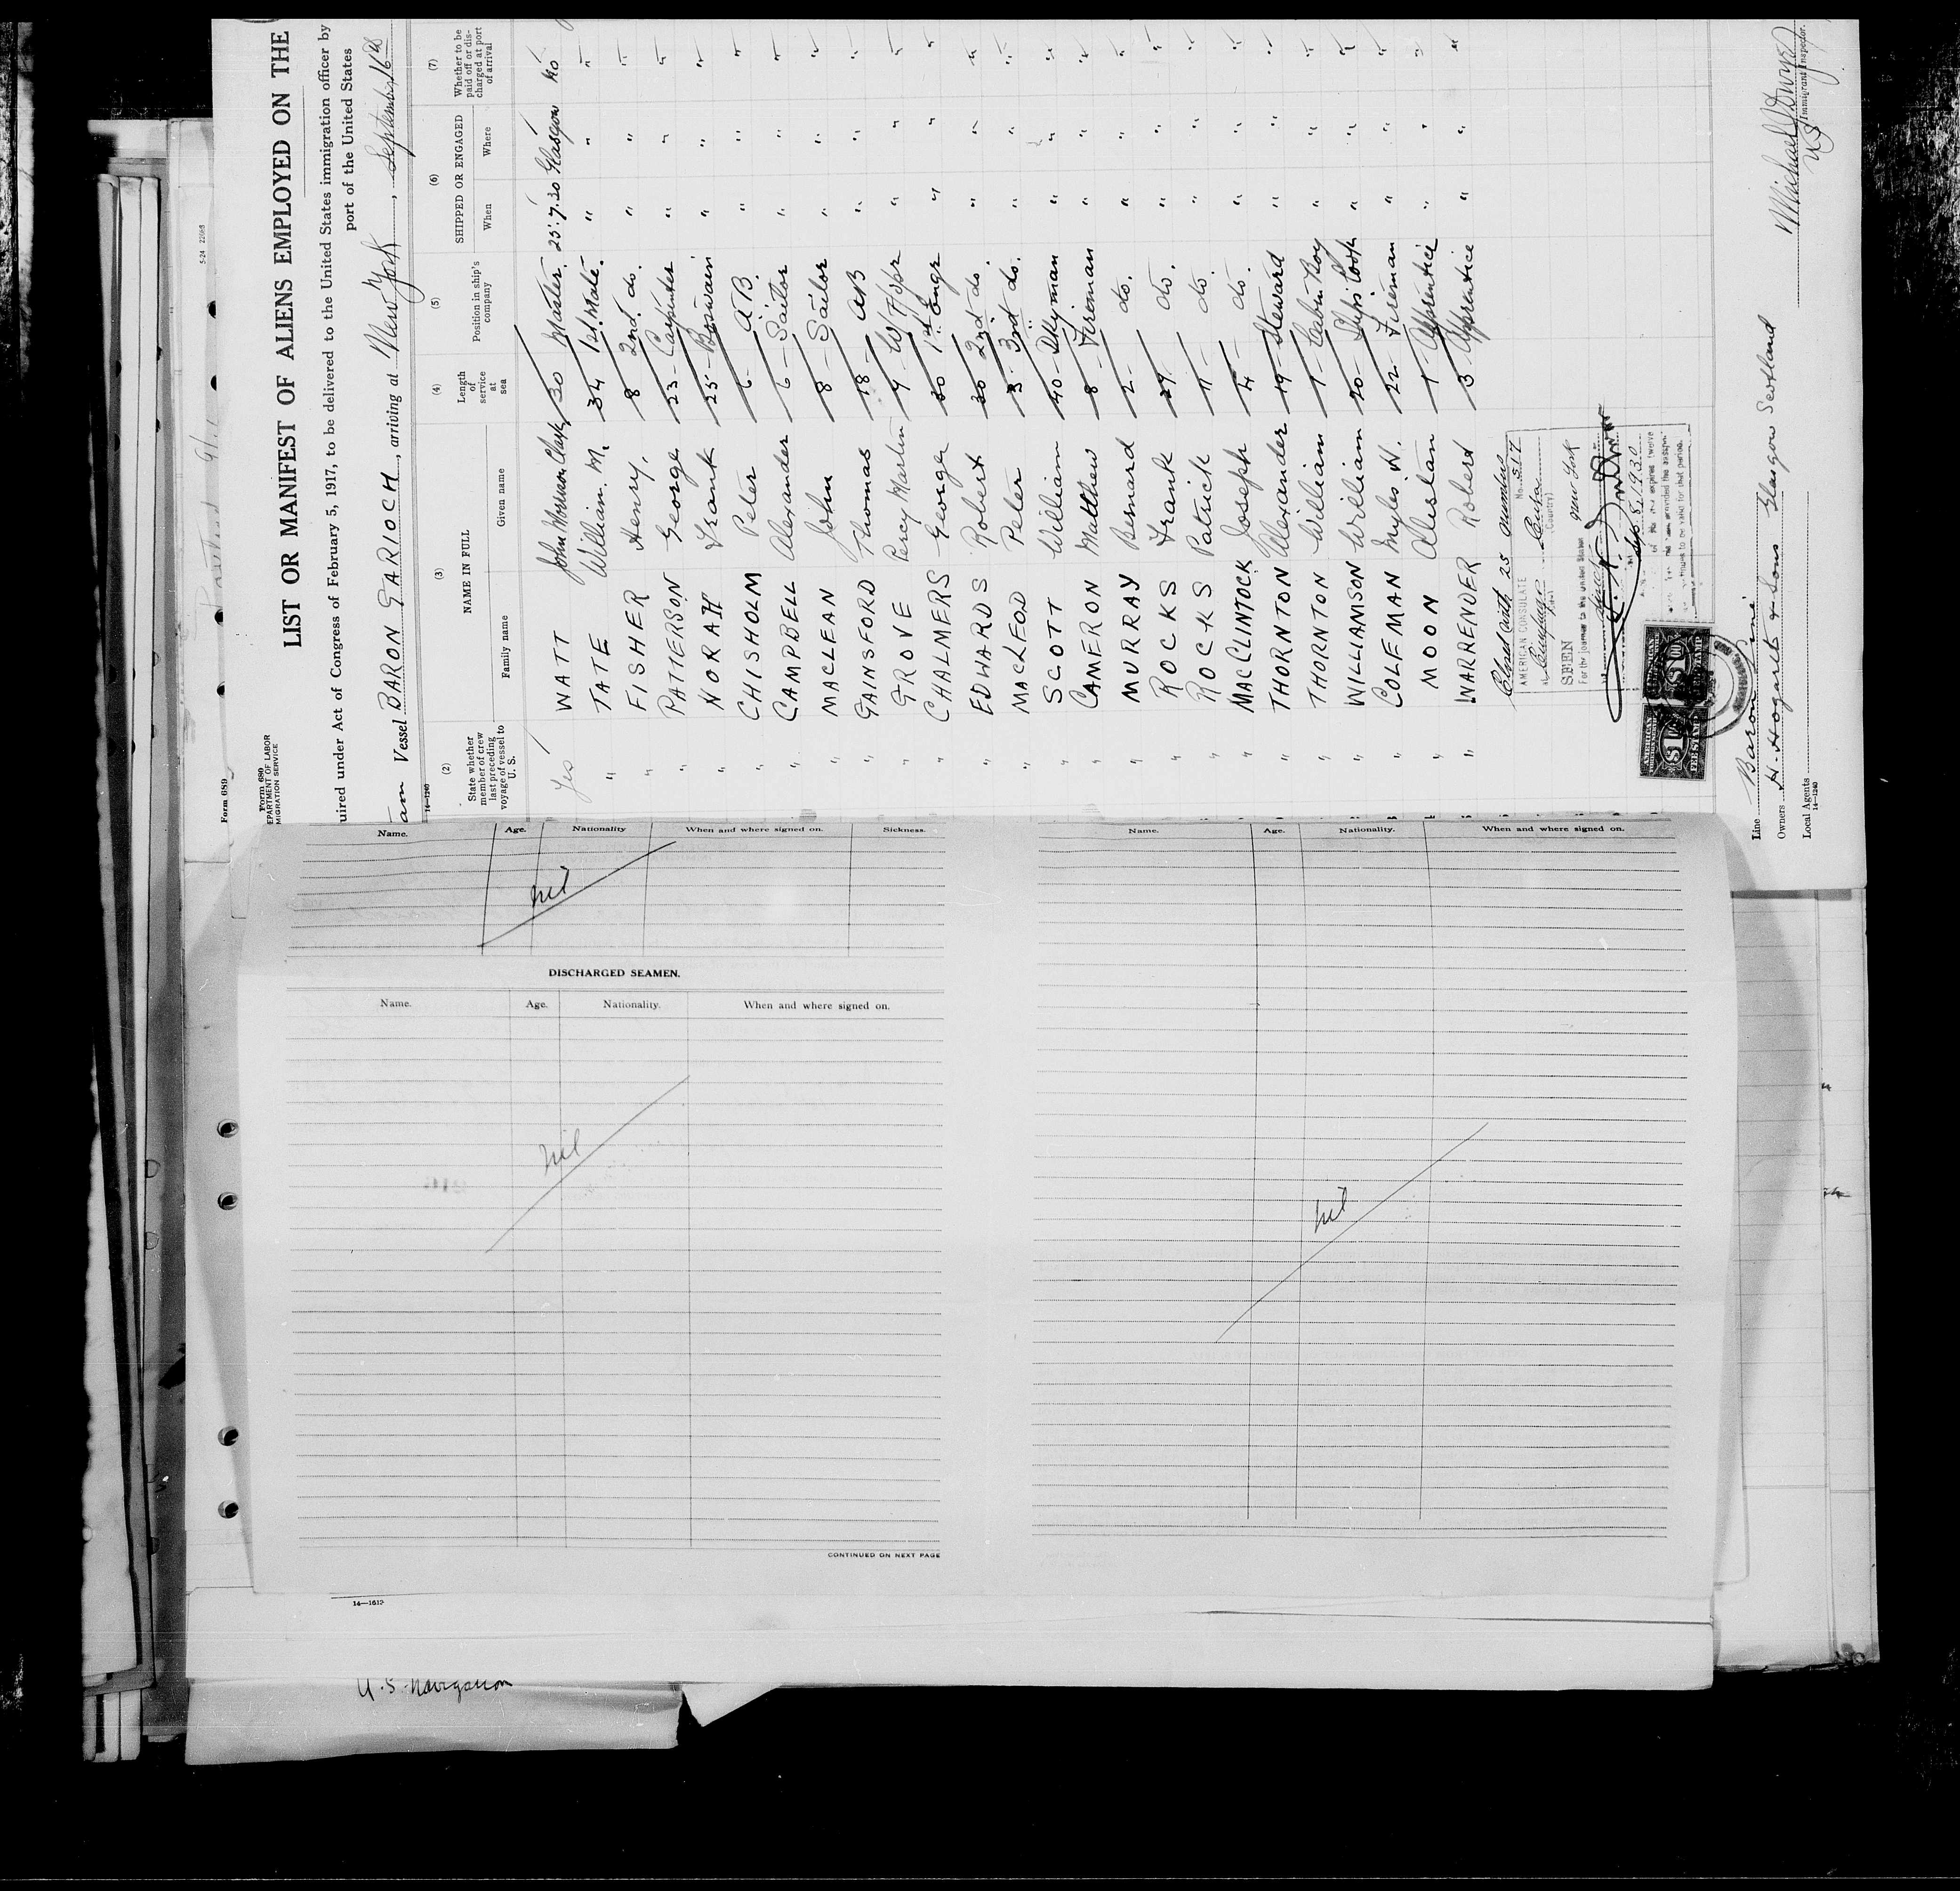 Form 689
5-24 22068
Form 689
EPARTMENT OF LABOR
MIGRATION SERVICE
LIST OR MANIFEST OF ALIENS EMPLOYED ON THE
uired under Act of Congress of February 5, 1917, to be delivered to the United States immigration officer by
port of the United States
Vessel BARON GARIOCH, arriving at New York, September 16th
14—1240
(2) (3) (4) (5) (6) (7)
State whether member of crew last preceding voyage of vessel to U. S.
NAME IN FULL
Family name Given name
Length of service at sea
Position in ship's company
SHIPPED OR ENGAGED
When Where
Whether to be paid off or discharged at port of arrival
Yes WATT John Morrison Clark 30 Master. 25.7.30 Glasgow No
" TATE William. M. 34 1st Mate. " " "
" FISHER Henry. 8 2nd. do. " " "
" PATTERSON George 23 Carpenter " " "
" HORAH Frank 25 Boswain " " "
" CHISHOLM Peter 6 A.B. " " "
" CAMPBELL Alexander 6 Sailor " " "
" MACLEAN John 8 Sailor " " "
" GAINSFORD Thomas 18 AB " " "
" GROVE Percy Martin 4 W/T/opr " " "
" CHALMERS George 30 1st Engr " " "
" EDWARDS Robert 30 2nd do. " " "
" MACLEOD Peter 3 3rd do. " " "
" SCOTT William 40 Dkyman " " "
" CAMERON Matthew 8 Fireman " " "
" MURRAY Bernard 2 do. " " "
" ROCKS Frank 24 do. " " "
" ROCKS Patrick 11 do. " " "
" MACCLINTOCK Joseph 4 do. " " "
" THORNTON Alexander 19 Steward " " "
" THORNTON William 1 Cabin Boy " " "
" WILLIAMSON William 20 Ships Cook " " "
" COLEMAN Myles H. 22 Fireman " " "
" MOON Alistan 1 Apprentice " " "
" WARRENDER Robert 3 Apprentice " " "
Closed with 25 members
AMERICAN CONSULATE No. 517
at Cienfuegos Cuba
(Country)
SEEN
For the journey to the United States New York
Sep. 8, 1930
AMERICAN $1 FEE STAMP
Line Baron Line
Owners H. Hogarth & Sons Glasgow Scotland
Local Agents
14—1240
Michael J Dwyer
U.S. Immigrant Inspector.
Name. Age. Nationality When and where signed on. Sickness.
nil
DISCHARGED SEAMEN.
Name. Age. Nationality. When and where signed on.
nil
CONTINUED ON NEXT PAGE
Name. Age. Nationality. When and where signed on.
nil
14—1613
U.S. Navigation